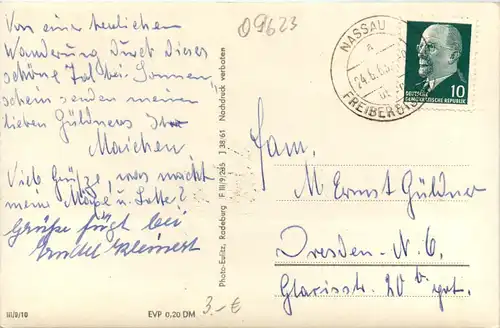 09623
Von einer herrlichen
Wanderung durch dieses
schöne Tal bei Sonnen
schein senden meinen
lieben Güldners
Maichen
Viele Grüße, was macht
meine
Grüße fügt bei
Kleinert
NASSAU
24.6.63
FREIBERG
10
DEUTSCHE
DEMOKRATISCHE REPUBLIK
Fam.
M Ernst Güldner
Dresden-N. 6.
Glacisstr. 20 b
Photo-Eulitz, Radeburg F III/9/265 J 38/61 Nachdruck verboten
III/9/10
EVP 0,20 DM
3.-€